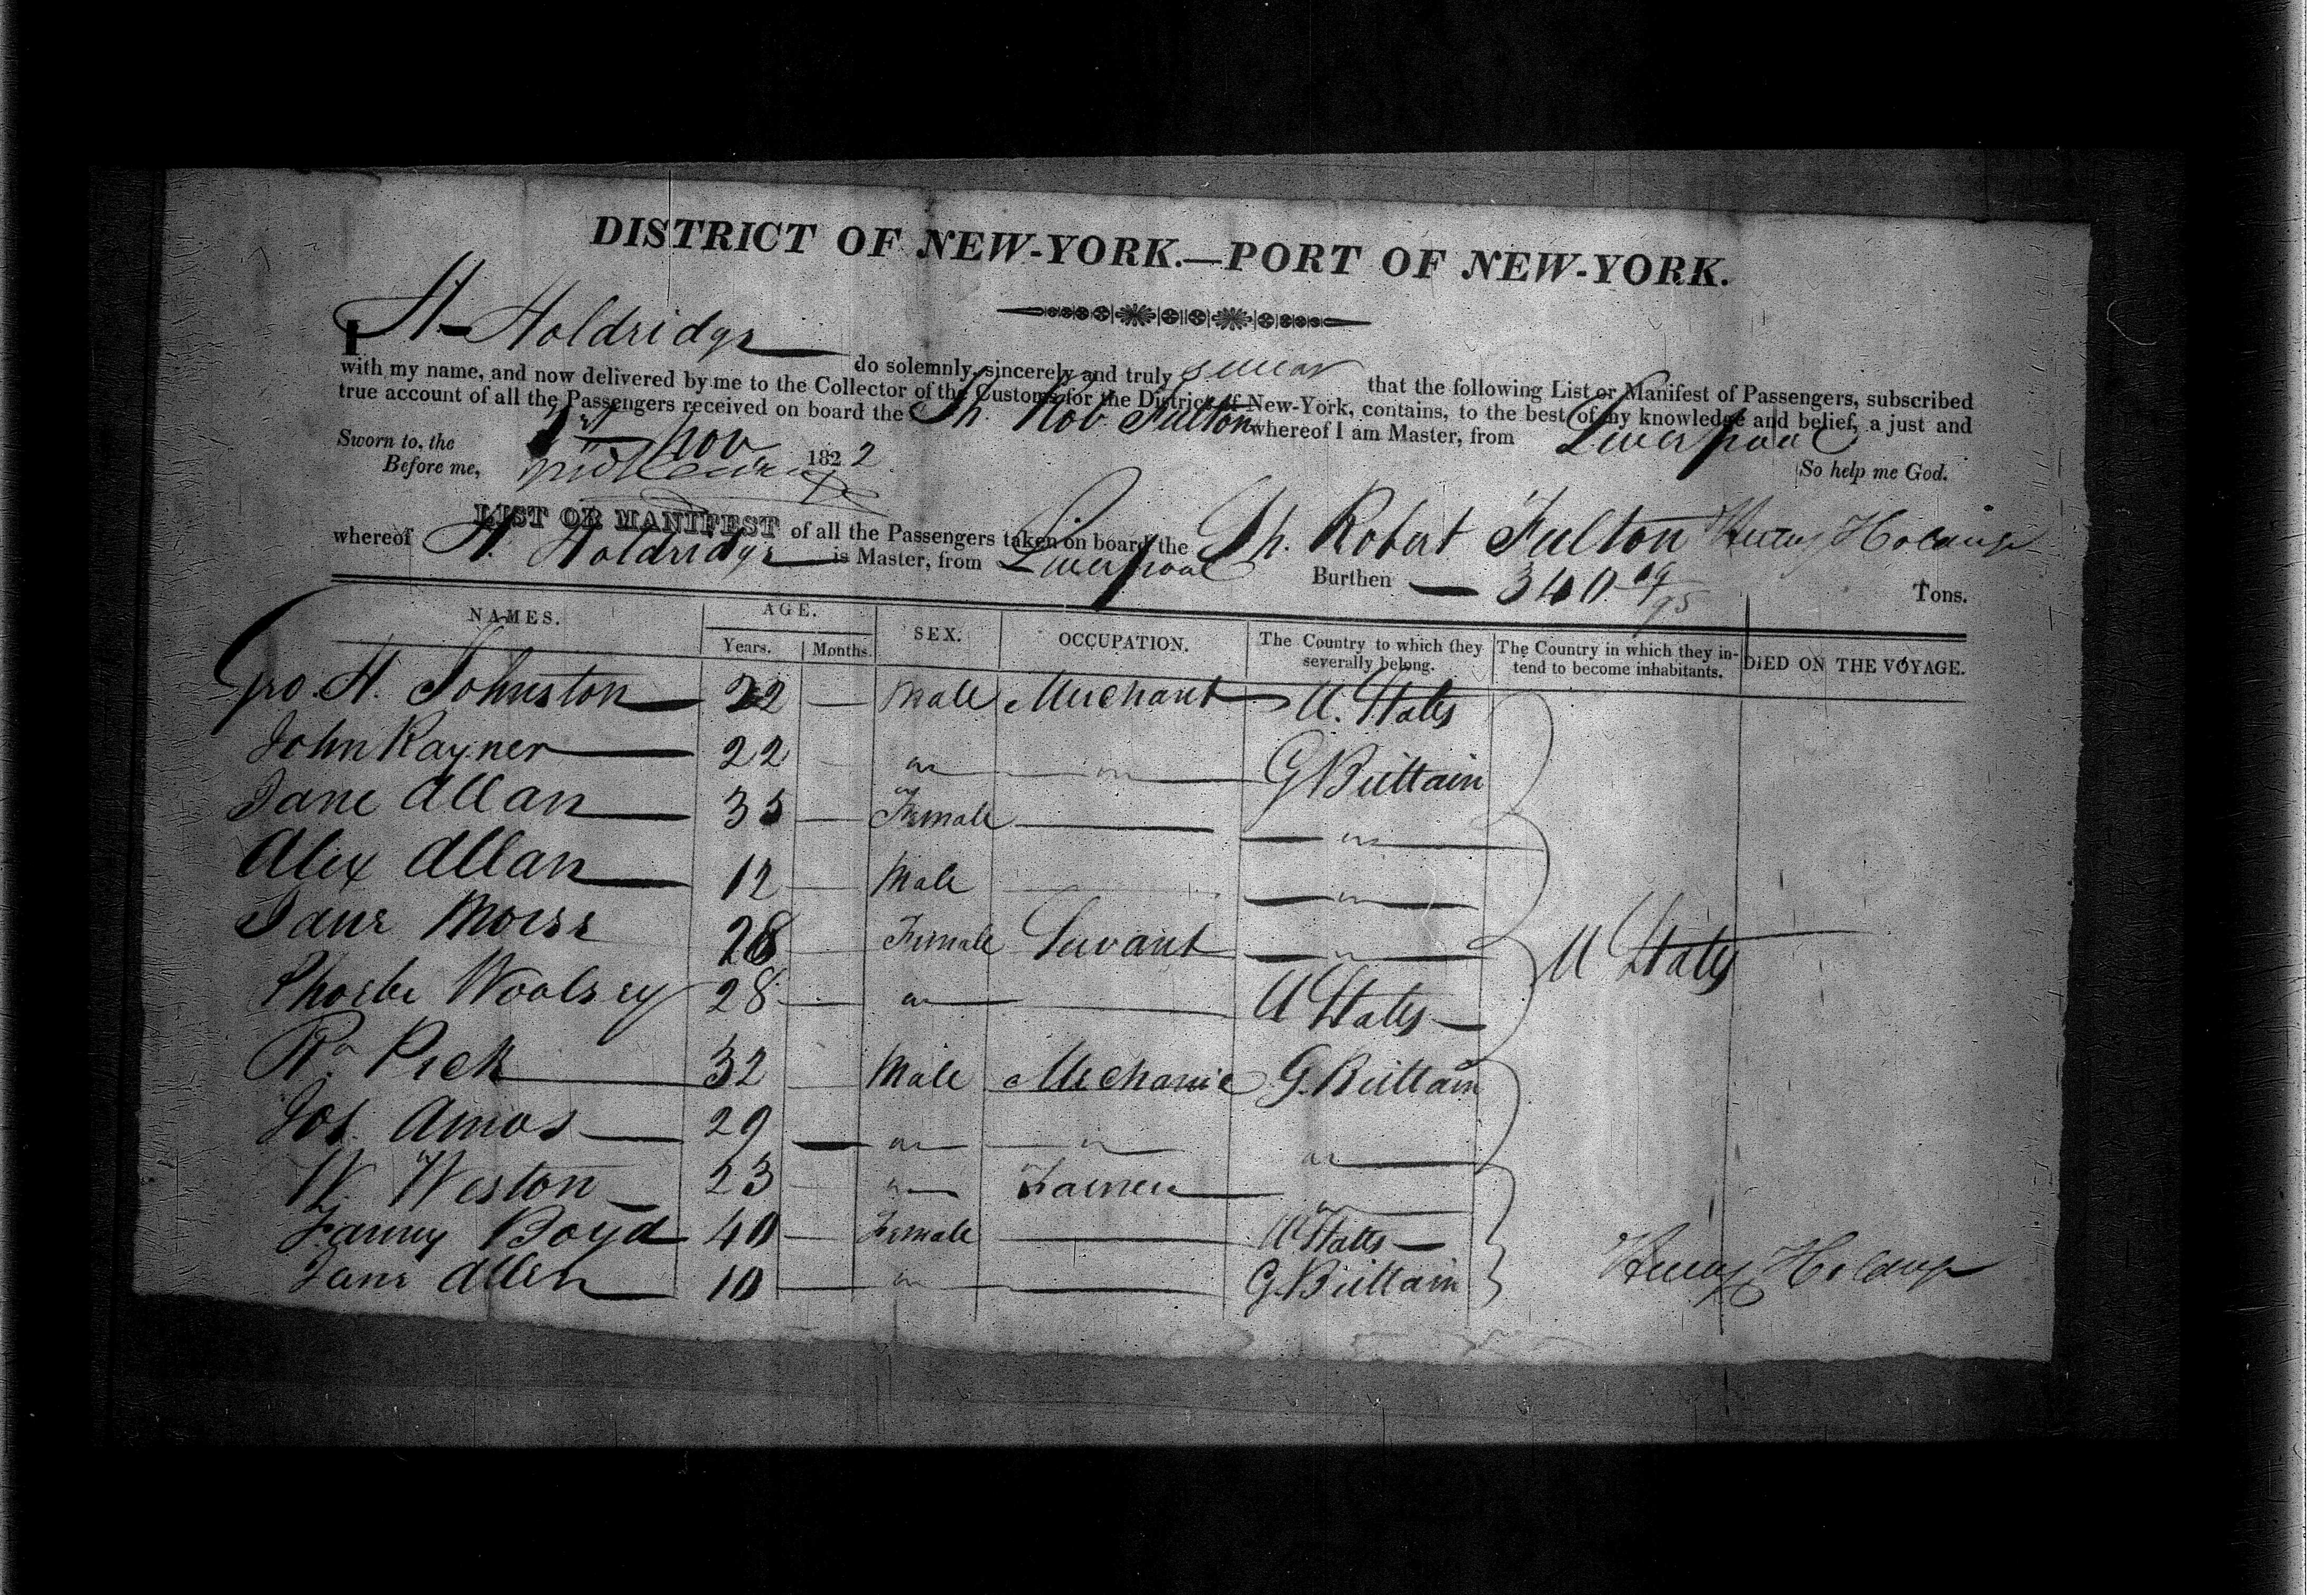 DISTRICT OF NEW-YORK.—PORT OF NEW-YORK.
I H. Holdridge do solemnly, sincerely and truly swear that the following List or Manifest of Passengers, subscribed
with my name, and now delivered by me to the Collector of the Customs for the District of New-York, contains, to the best of my knowledge and belief, a just and
true account of all the Passengers received on board the Sh. Rob Fulton whereof I am Master, from Liverpool
Sworn to, the 1st Nov 1822
Before me,
So help me God.
LIST OR MANIFEST of all the Passengers taken on board the Sh. Robert Fulton Henry Holdridge
whereof H. Holdridge is Master, from Liverpool Burthen — 340 19/95 Tons.
NAMES. AGE. Years. Months. SEX. OCCUPATION. The Country to which they severally belong. The Country in which they intend to become inhabitants. DIED ON THE VOYAGE.
Geo. H. Johnston 22 — Male Merchant U. States
John Rayner 22 — " " G Brittain
Jane Allan 35 — Female — "
Alex Allan 12 — Male — "
Jane Morse 28 — Female Servant "
U States
Phoebe Woolsey 28 — " — U States
Rd. Peck 32 — Male Mechanic G. Brittain
Jos. Amos 29 — " " "
W. Weston 23 — " Farmer "
Fanny Boyd 40 — Female — U States
Jane Allen 10 — " — G. Brittain
Henry Holdridge